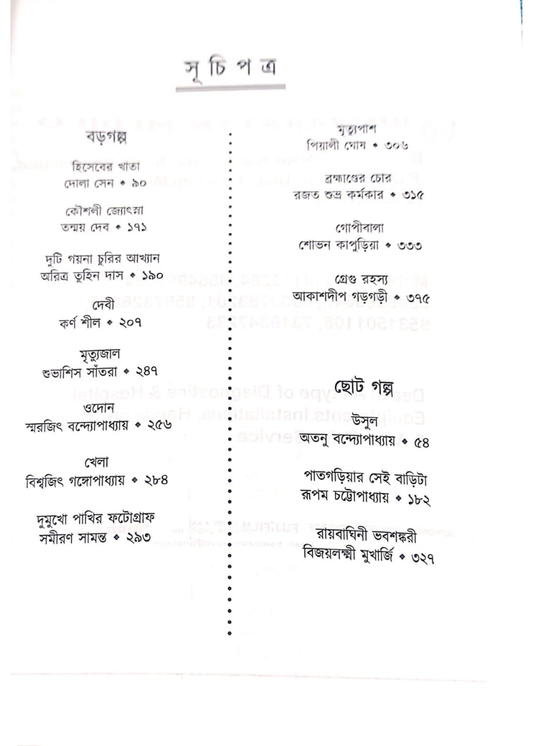 সূচিপত্র
বড়গল্প
হিসেবের খাতা
দোলা সেন ◆ ৯০
কৌশলী জ্যোৎস্না
তন্ময় দেব ◆ ১৭১
দুটি গয়না চুরির আখ্যান
অরিত্র তুহিন দাস ◆ ১৯০
দেবী
কর্ণ শীল ◆ ২০৭
মৃত্যুজাল
শুভাশিস সাঁতরা ◆ ২৪৭
ওদোন
স্মরজিৎ বন্দ্যোপাধ্যায় ◆ ২৫৬
খেলা
বিশ্বজিৎ গঙ্গোপাধ্যায় ◆ ২৮৪
দুমুখো পাখির ফটোগ্রাফ
সমীরণ সামন্ত ◆ ২৯৩
মৃত্যুপাশ
পিয়ালী ঘোষ ◆ ৩০৬
ব্রহ্মাণ্ডের চোর
রজত শুভ্র কর্মকার ◆ ৩১৫
গোপীবালা
শোভন কাপুড়িয়া ◆ ৩৩৩
গ্রেগু রহস্য
আকাশদীপ গড়গড়ী ◆ ৩৭৫
ছোট গল্প
উসুল
অতনু বন্দ্যোপাধ্যায় ◆ ৫৪
পাতগড়িয়ার সেই বাড়িটা
রূপম চট্টোপাধ্যায় ◆ ১৮২
রায়বাঘিনী ভবশঙ্করী
বিজয়লক্ষ্মী মুখার্জি ◆ ৩২৭